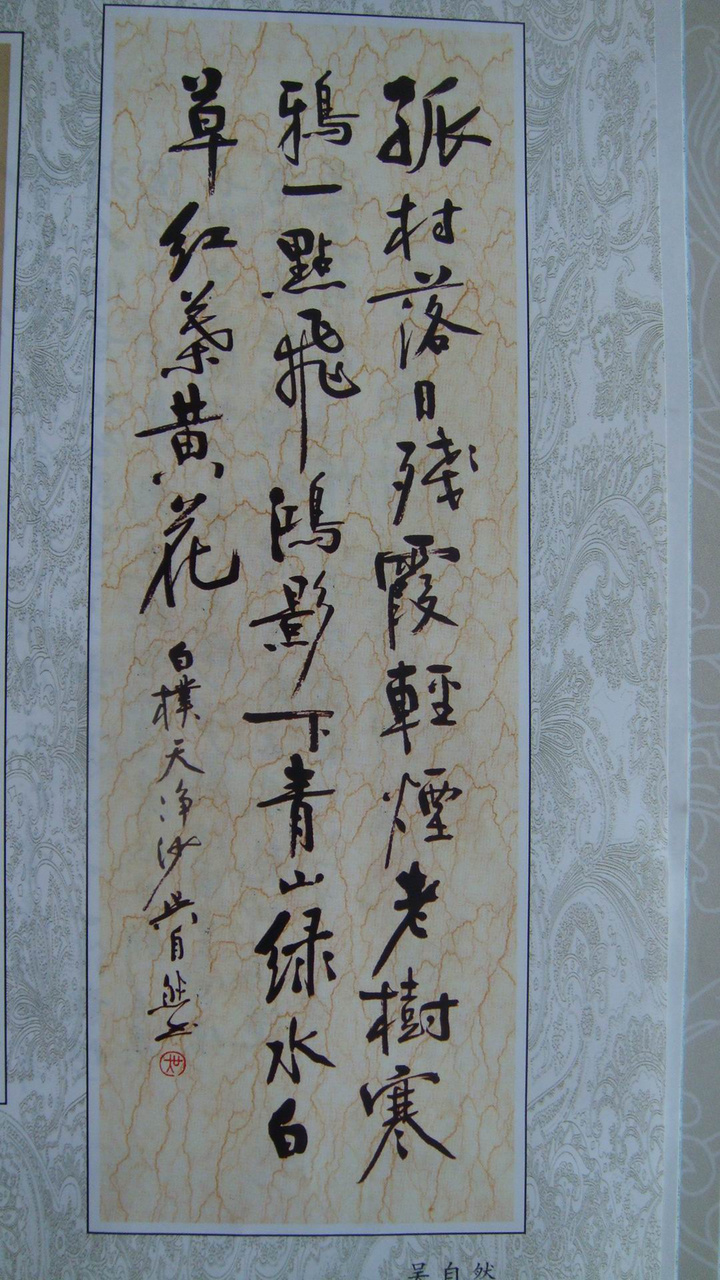 孤村落日殘霞輕煙老樹寒
鴉一點飛鴻影下青山绿水白
草红葉黄花
白樸天净沙吴自然书
吴自然